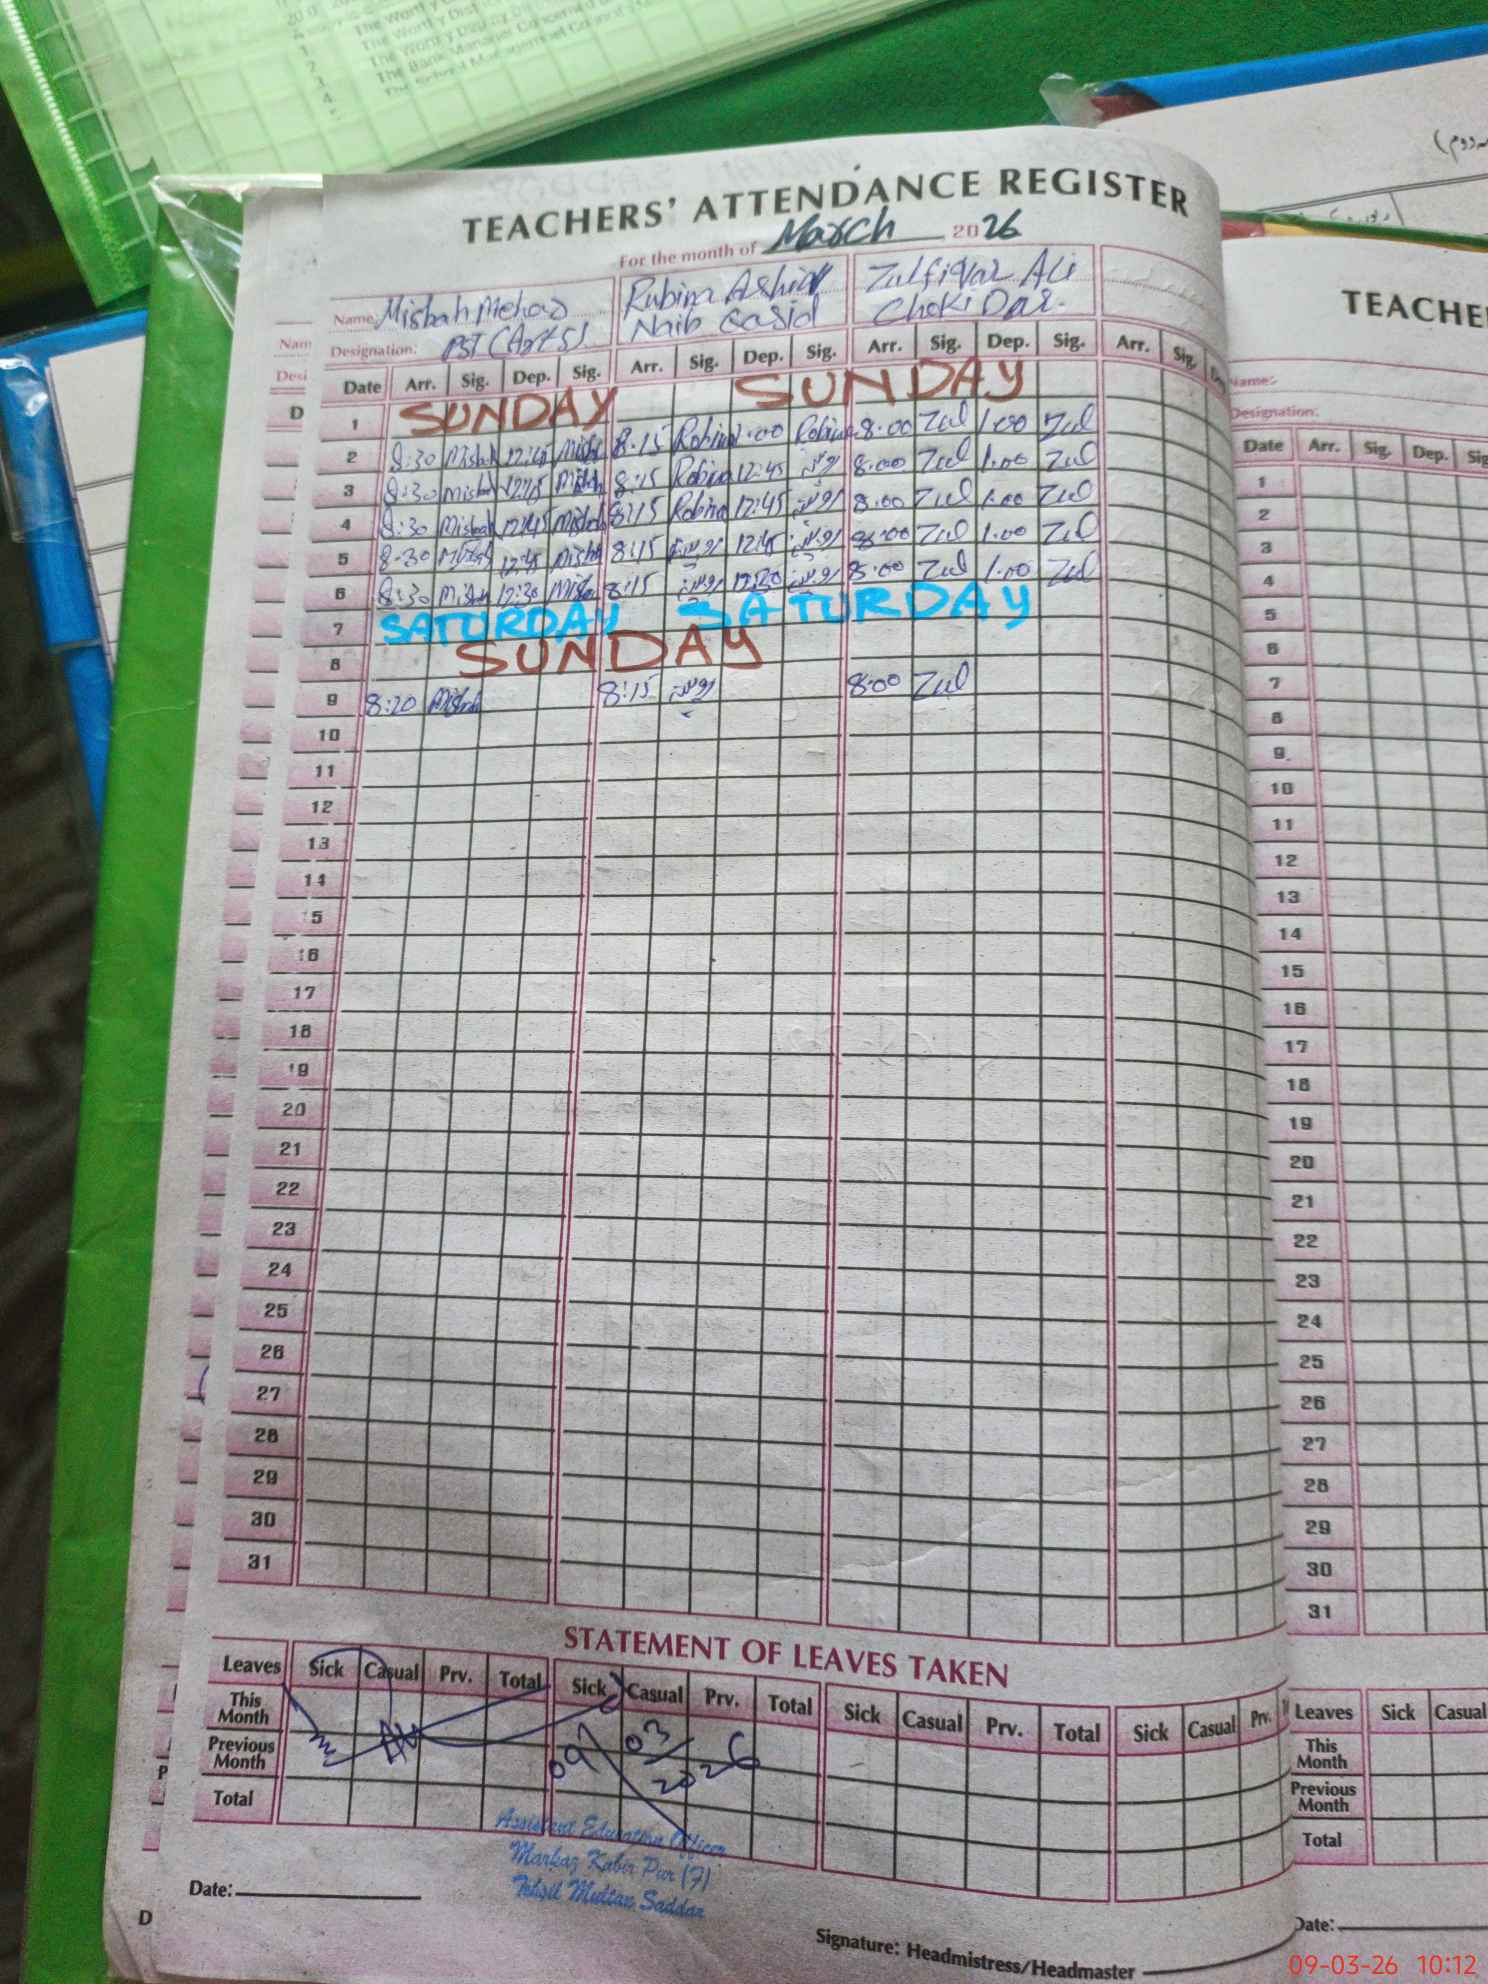 The Bank Manager Concerned
TEACHERS' ATTENDANCE REGISTER
For the month of March 2026
Name Misbah Mehad Rubina Ashiq Zulfiqar Ali
Designation: PST (Arts) Naib Qasid Choki Dar.
Date Arr. Sig. Dep. Sig. Arr. Sig. Dep. Sig. Arr. Sig. Dep. Sig. Arr. Sig.
1 SUNDAY SUNDAY
2 8:30 Misbah 12:45 Misbah 8:15 Robina 1:00 Robina 8:00 Zul 1.00 Zul
3 8:30 Misbah 12:45 Misbah 8:15 Robina 12:45 روبینہ 8:00 Zul 1.00 Zul
4 8:30 Misbah 12:45 Misbah 8:15 Robina 12:45 روبینہ 8:00 Zul 1.00 Zul
5 8:30 Misbah 12:45 Misbah 8:15 روبینہ 12:45 روبینہ 8:00 Zul 1.00 Zul
6 8:30 Misbah 12:30 Misba 8:15 روبینہ 12:30 روبینہ 8:00 Zul 1.00 Zul
7 SATURDAY SATURDAY
8 SUNDAY
9 8:20 Misbah 8:15 روبینہ 8:00 Zul
10
11
12
13
14
15
16
17
18
19
20
21
22
23
24
25
26
27
28
29
30
31
STATEMENT OF LEAVES TAKEN
Leaves Sick Casual Prv. Total Sick Casual Prv. Total Sick Casual Prv. Total Sick Casual Prv.
This Month
Previous Month
Total
09/03/2026
Assistent Education Officer
Markaz Kabir Pur (F)
Tehsil Multan Saddar
Date:
Signature: Headmistress/Headmaster
TEACHE
Name:
Designation:
Date Arr. Sig. Dep. Sig
1
2
3
4
5
6
7
8
9
10
11
12
13
14
15
16
17
18
19
20
21
22
23
24
25
26
27
28
29
30
31
Leaves Sick Casual
This Month
Previous Month
Total
Date:
09-03-26 10:12